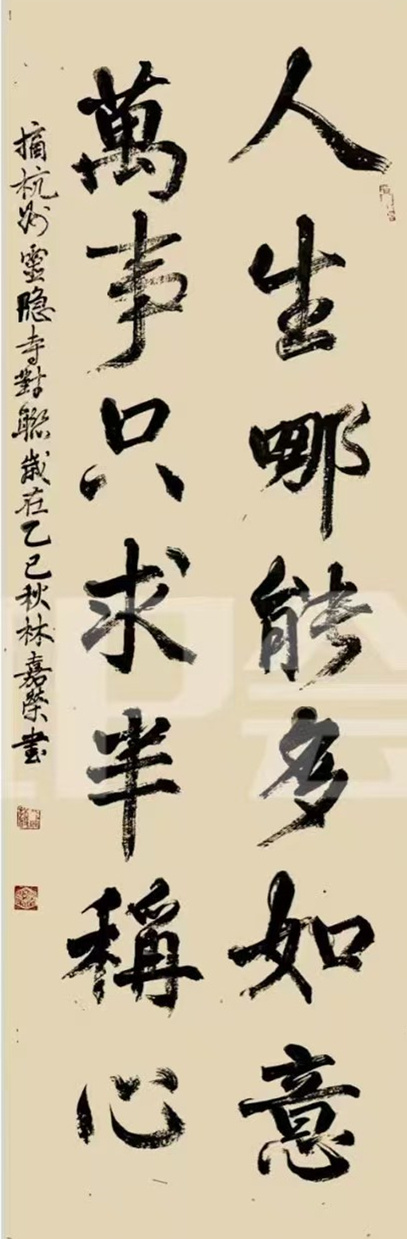 人生哪能多如意
萬事只求半稱心
摘杭州靈隐寺對聯歲在乙巳秋林嘉榮書